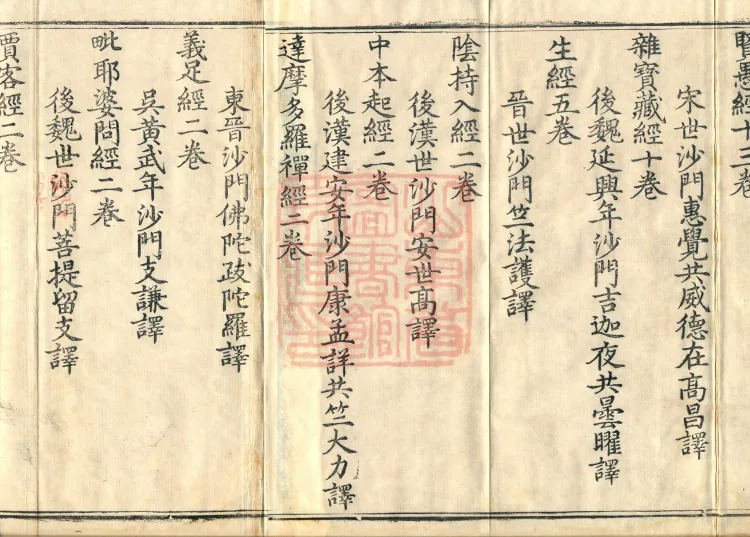 賢愚經十三卷
宋世沙門惠覺共威德在高昌譯
雜寶藏經十卷
後魏延興年沙門吉迦夜共曇曜譯
生經五卷
晉世沙門竺法護譯
陰持入經二卷
後漢世沙門安世髙譯
中本起經二卷
後漢建安年沙門康孟詳共竺大力譯
達摩多羅禪經二卷
東晉沙門佛陀跋陀羅譯
義足經二卷
吳黃武年沙門支謙譯
毗耶婆問經二卷
後魏世沙門菩提留支譯